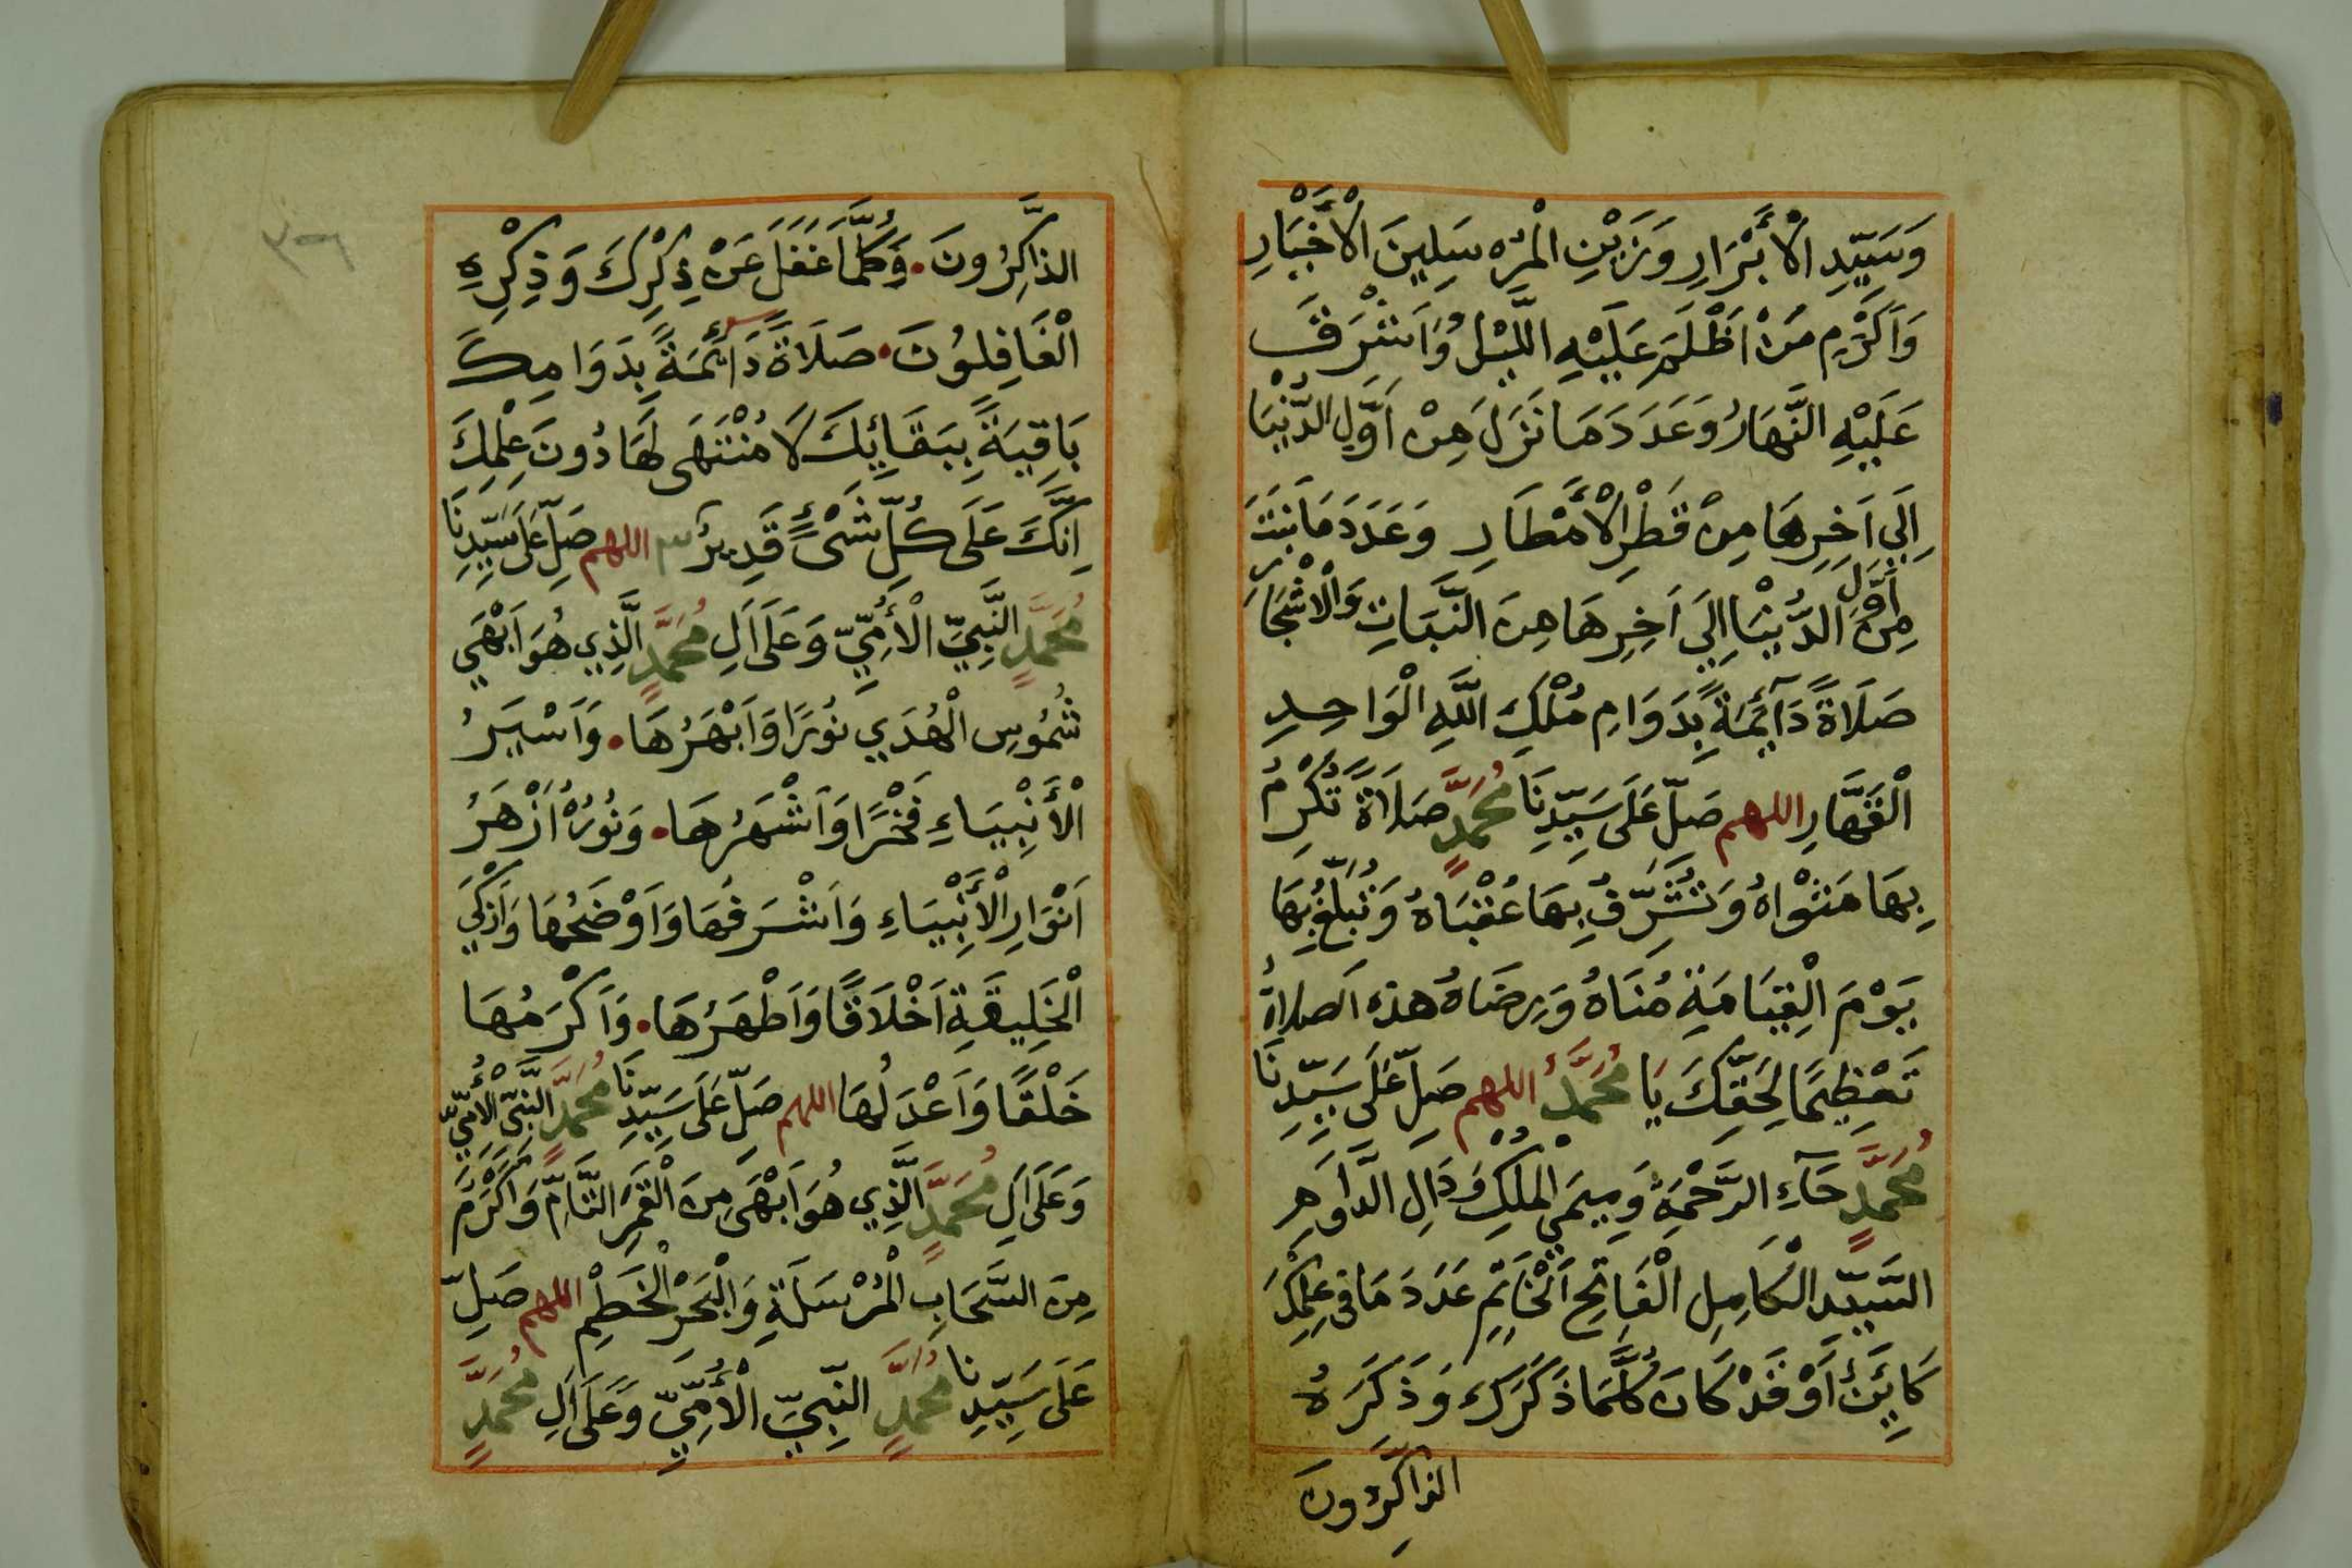 وَسَيِّدِ الْأَبْرَارِ وَزَيْنِ الْمُرْسَلِينَ الْأَخْيَارِ
وَأَكْرَمِ مَنْ اَظْلَمَ عَلَيْهِ اللَّيْلُ وَاَشْرَقَ
عَلَيْهِ النَّهَارُ وَعَدَدَ مَا نَزَلَ مِنْ اَوَّلِ الدُّنْيَا
اِلَي اَخِرِهَا مِنْ قَطْرِ الْأَمْطَارِ وَعَدَدَ مَا نَبَتَ
مِنْ اَوَّلِ الدُّنْيَا اِلَي اَخِرِهَا مِنَ النَّبَاتِ وَالْاَشْجَارِ
صَلَاةً دَآئِمَةً بِدَوَامِ مُلْكِ اللَّهِ الْوَاحِدِ
الْقَهَّارِ اللهم صَلِّ عَلَى سَيِّدِنَا مُحَمَّدٍ صَلَاةً تُكْرِمُ
بِهَا مَثْوَاهُ وَتُشَرِّفُ بِهَا عُقْبَاهُ وَتُبَلِّغُ بِهَا
يَوْمَ الْقِيَامَةِ مُنَاهُ وَرِضَاهُ هذه الصلاةُ
تَعْظِيمًا لِحَقِّكَ يَا مُحَمَّدُ اللهم صَلِّ عَلَى سَيِّدِنَا
مُحَمَّدٍ حَآءِ الرَّحْمَةِ وَمِيمَيِ الْمُلْكِ وَدَالِ الدَّوَامِ
السَّيِّدِ الْكَامِلِ الْفَاتِحِ الْخَاتِمِ عَدَدَ مَا فِي عِلْمِكَ
كَايِنٌ أَوْ قَدْ كَانَ كُلَّمَا ذَكَرَكَ وَذَكَرَهُ
الذاكِرُونَ
٣٦
الذَّاكِرُونَ. وَكُلَّمَا غَفَلَ عَنْ ذِكْرِكَ وَذِكْرِهِ
الْغَافِلُونَ. صَلَاةً دَائِمَةً بِدَوَامِكَ
بَاقِيَةً بِبَقَائِكَ لَا مُنْتَهَى لَهَا دُونَ عِلْمِكَ
اِنَّكَ عَلَى كُلِّ شَىْءٍ قَدِيرٌ ٣ اللهم صَلِّ عَلَى سَيِّدِنَا
مُحَمَّدٍ النَّبِيِّ الْأُمِّيِّ وَعَلَى اَلِ مُحَمَّدٍ الَّذِي هُوَ اَبْهَي
شُمُوسِ الْهُدَي نُورًا وَاَبْهَرُهَا. وَاَسْيَرُ
الْأَنْبِيَاءِ فَخْرًا وَاَشْهَرُهَا. وَنُورُهُ اَزْهَرُ
اَنْوَارِ الْأَنْبِيَاءِ وَاَشْرَفُهَا وَاَوْضَحُهَا وَاَزْكَي
الْخَلِيقَةِ اَخْلَاقًا وَاَطْهَرُهَا. وَاَكْرَمُهَا
خَلْقًا وَاَعْدَلُهَا اللهم صَلِّ عَلَى سَيِّدِنَا مُحَمَّدٍ النَّبِيِّ الْأُمِّيِّ
وَعَلَى اَلِ مُحَمَّدٍ الَّذِي هُوَ اَبْهَى مِنَ الْقَمَرِ التَّامِّ وَاَكْرَمَ
مِنَ السَّحَابِ الْمُرْسَلَةِ وَالْبَحْرِ الْخَطِمْ اللهم صَلِّ
عَلَى سَيِّدِنا مُحَمَّدٍ النَّبِيِّ الْأُمِّيِّ وَعَلَى اَلِ مُحَمَّدٍ